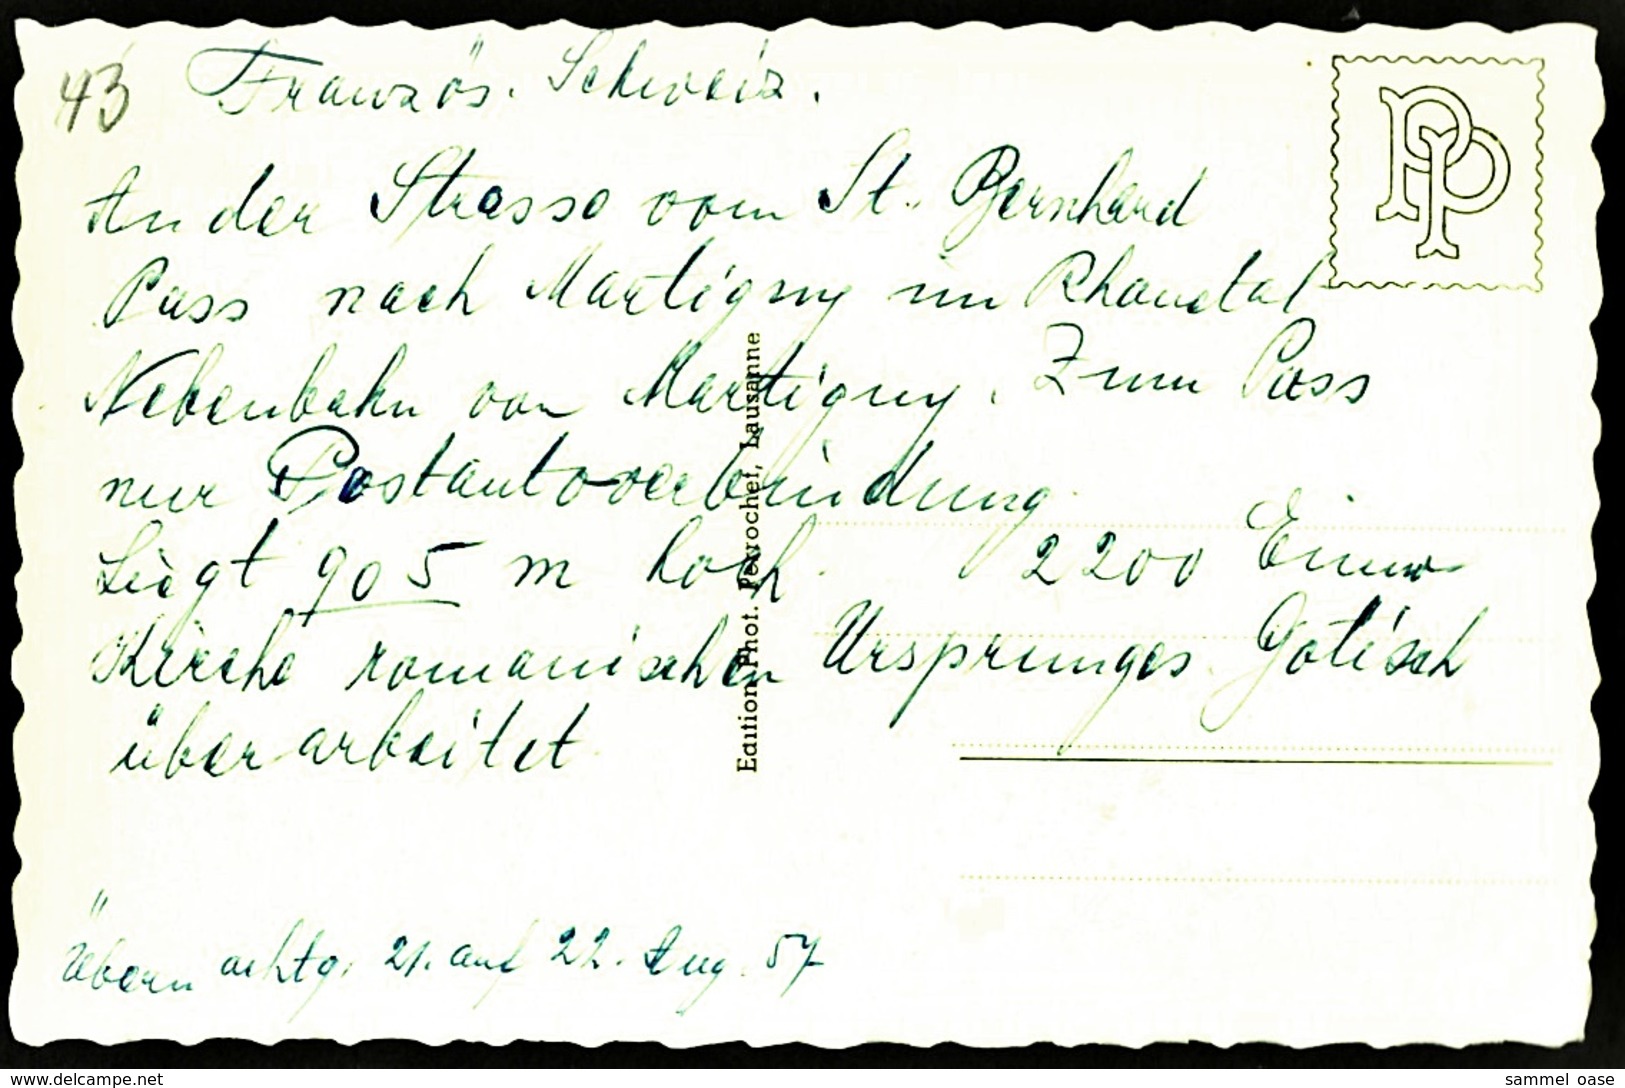 43 Französ. Schweiz.
An der Strasse vom St. Bernhard
Pass nach Martigny im Rhonetal
Nebenbahn von Martigny. Zum Pass
nur Postautoverbindung
Liegt 905 m hoch. 2200 Einw.
Kirche romanischen Ursprunges. Gotisch
überarbeitet
Übernachtg. 21. auf 22. Aug. 57
PP
Edition Phot. Perrochet, Lausanne
www.delcampe.net
sammel_oase